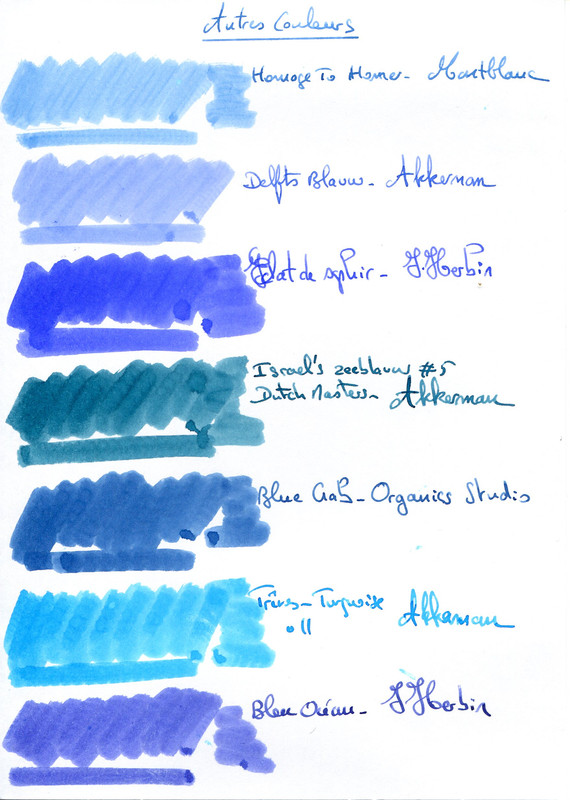 Autres Couleurs
Homage To Homer - Montblanc
Delfts Blauw - Akkerman
Eclat de saphir - J. Herbin
Israel's zeeblauw #5
Dutch Masters - Akkerman
Blue Crab - Organics Studio
Turquoise Akkerman
Bleu Océan - J Herbin